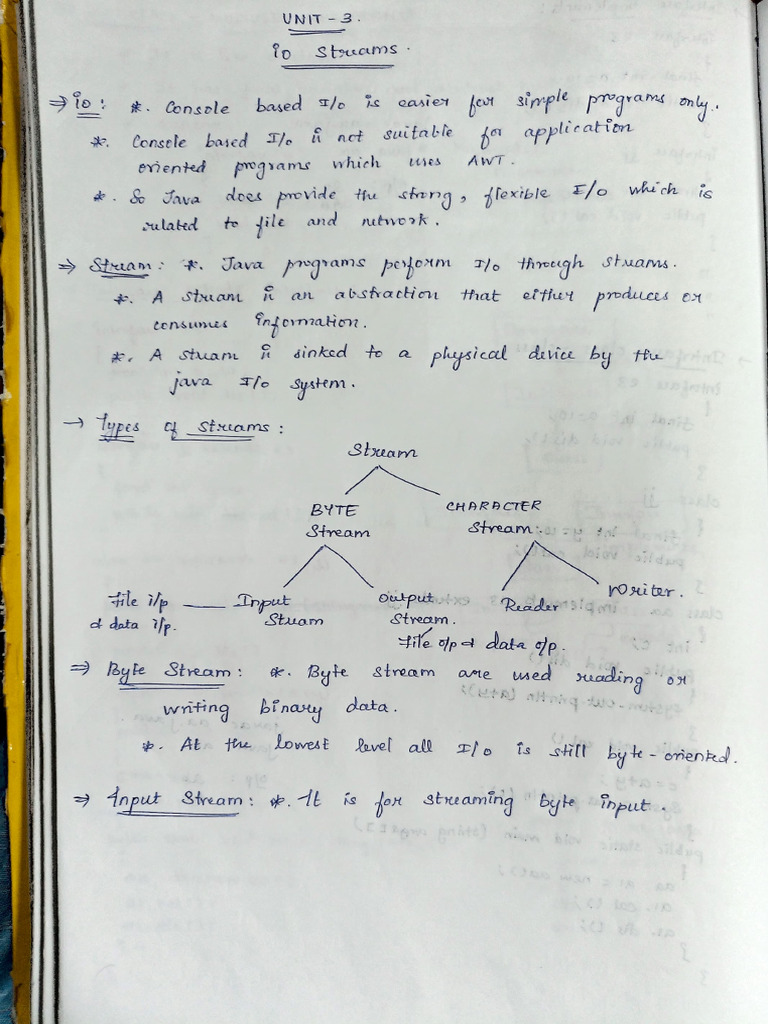 UNIT - 3.
io Streams.
⇒ io : *. Console based I/o is easier for simple programs only.
*. Console based I/o is not suitable for application
oriented programs which uses AWT.
*. So Java does provide the strong, flexible I/o which is
related to file and network.
⇒ Stream : *. Java programs perform I/o through streams.
*. A stream is an abstraction that either produces or
consumes information.
*. A stream is sinked to a physical device by the
java I/o system.
→ Types of Streams :
Stream
BYTE CHARACTER
Stream Stream.
File i/p Input Output Reader Writer.
& data i/p. Stream Stream.
File o/p & data o/p.
⇒ Byte Stream : *. Byte stream are used reading or
writing binary data.
*. At the lowest level all I/o is still byte-oriented.
⇒ Input Stream : *. It is for streaming byte input.